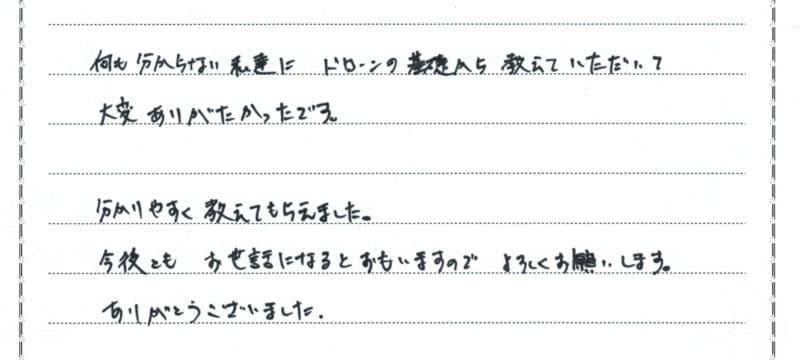 何も分からない私達に ドローンの基礎から 教えていただいて
大変 ありがたかったです。
分かりやすく 教えてもらえました。
今後とも お世話になるとおもいますので よろしくお願いします。
ありがとうございました.